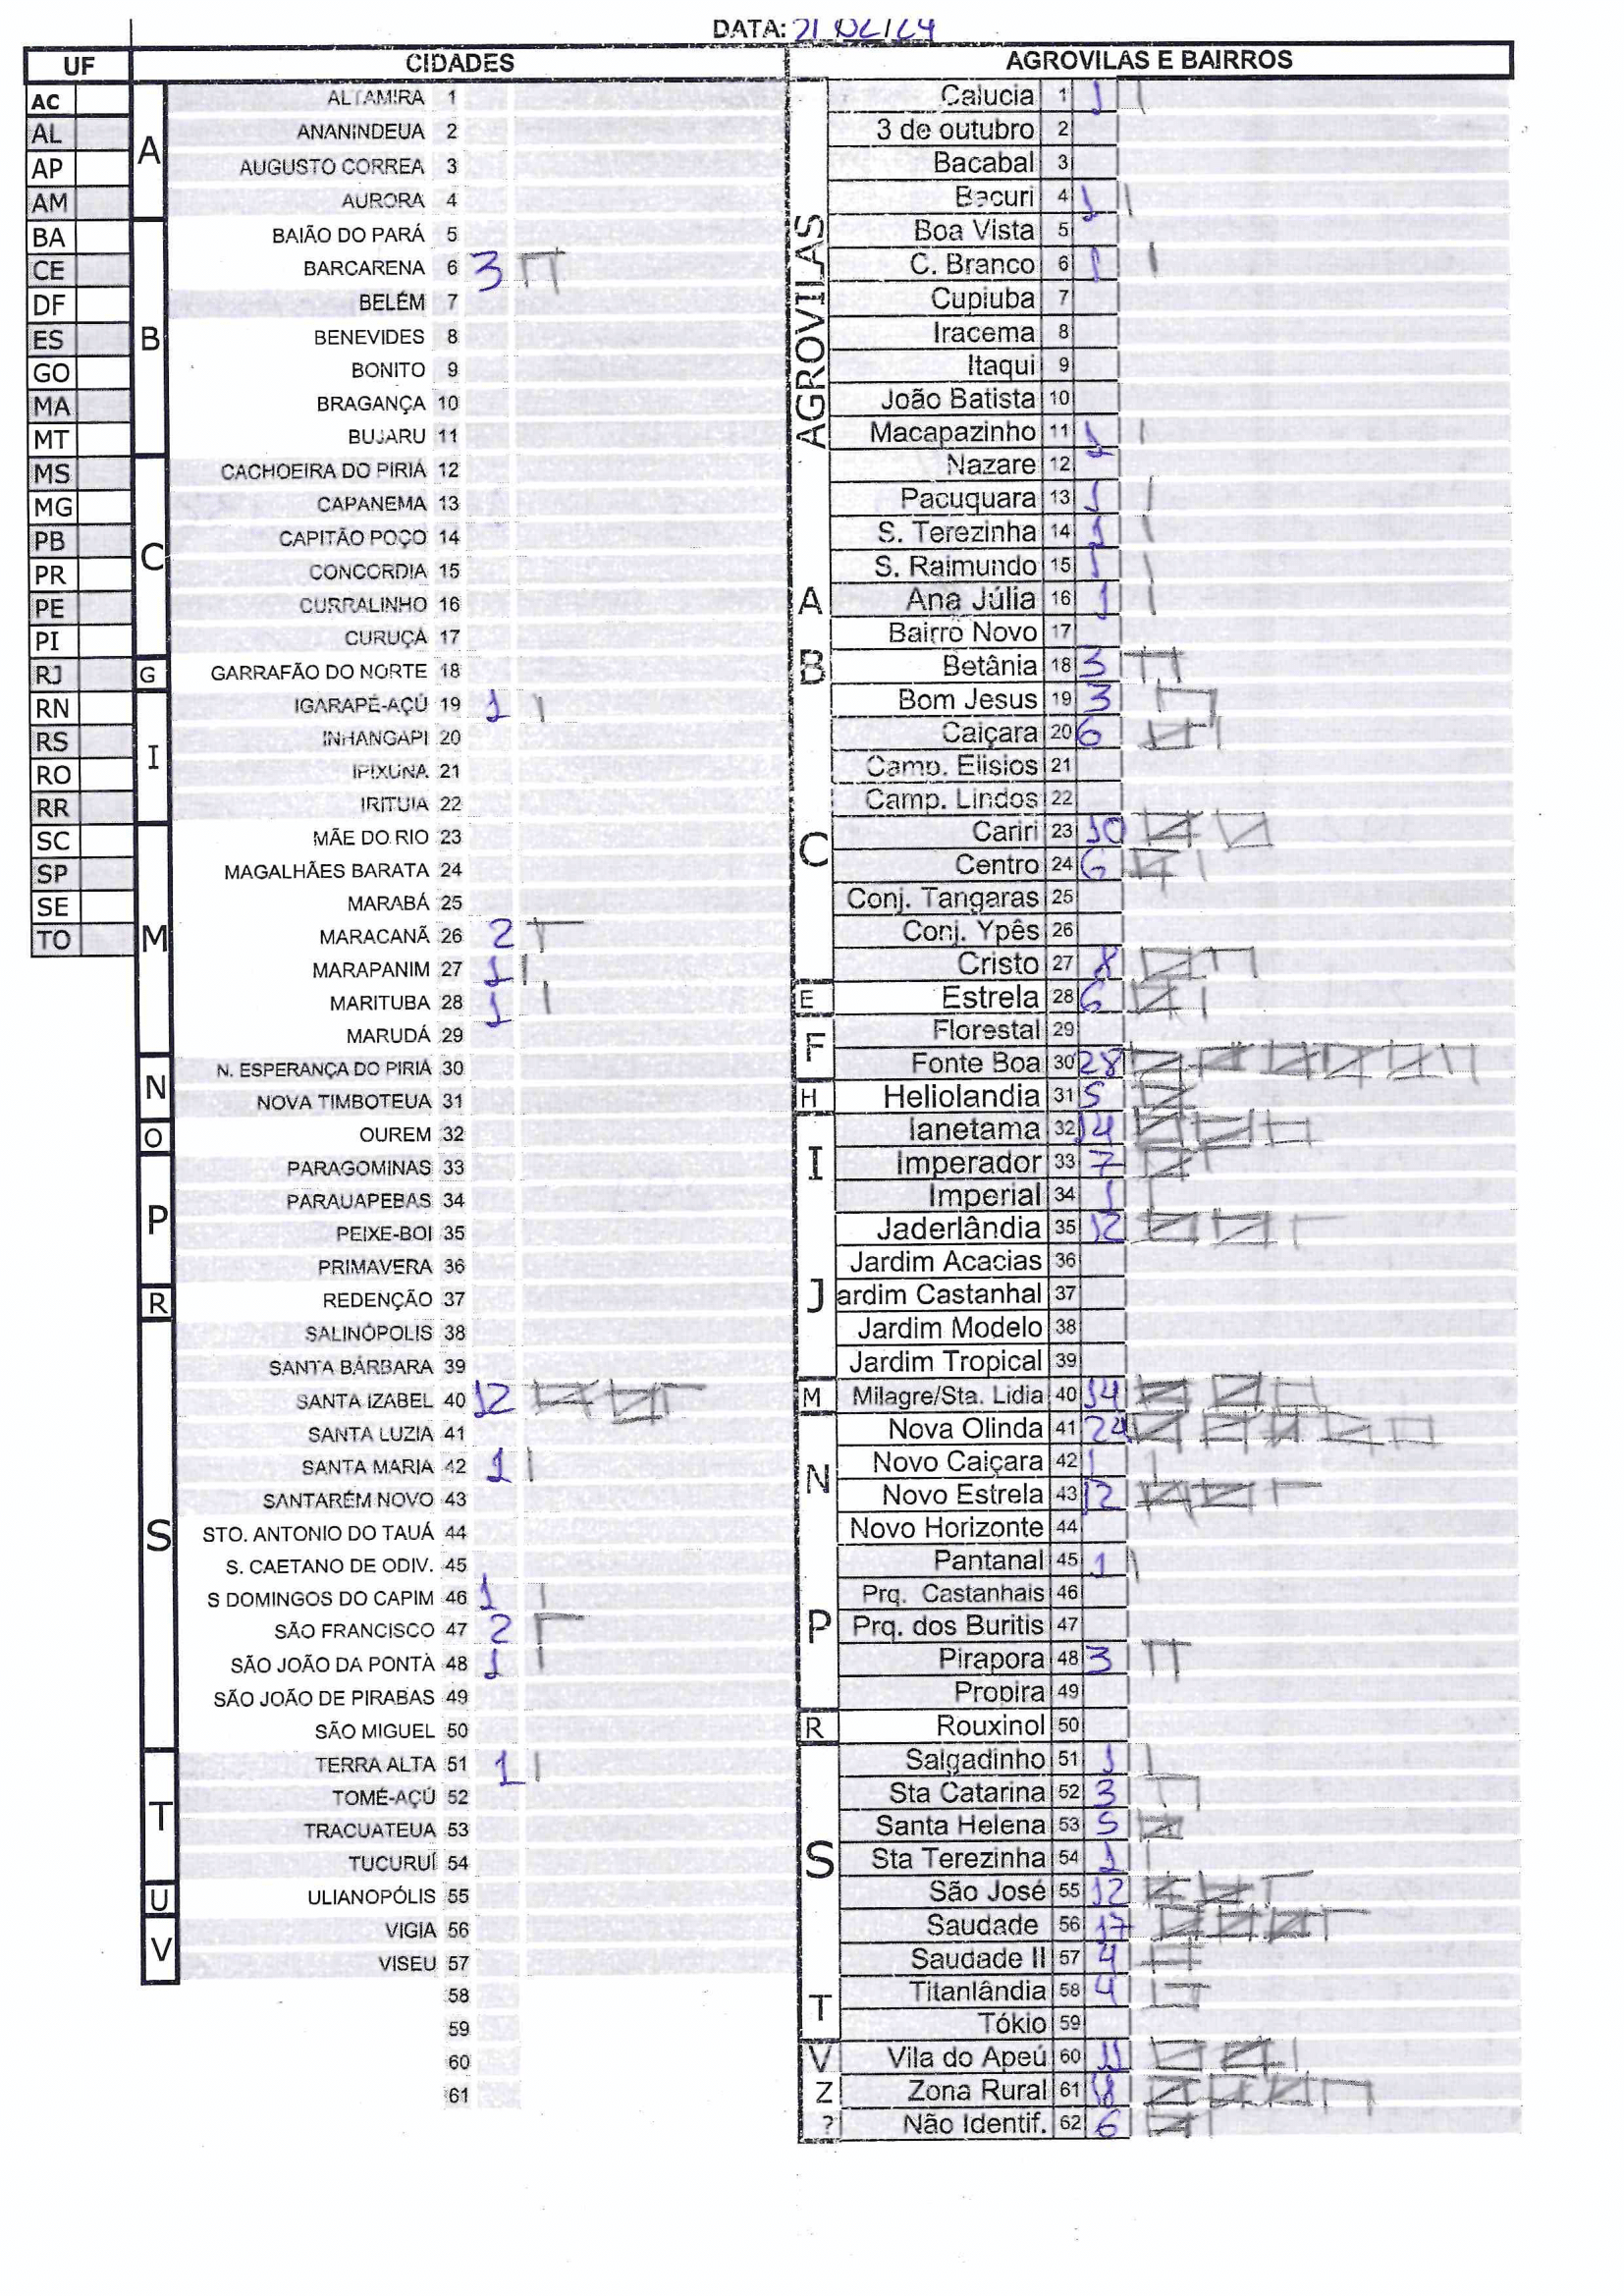 DATA: 21/02/24
UF CIDADES AGROVILAS E BAIRROS
AC
AL
AP
AM
BA
CE
DF
ES
GO
MA
MT
MS
MG
PB
PR
PE
PI
RJ
RN
RS
RO
RR
SC
SP
SE
TO
A
ALTAMIRA 1
ANANINDEUA 2
AUGUSTO CORREA 3
AURORA 4
B
BAIÃO DO PARÁ 5
BARCARENA 6 3
BELÉM 7
BENEVIDES 8
BONITO 9
BRAGANÇA 10
BUJARU 11
C
CACHOEIRA DO PIRIÁ 12
CAPANEMA 13
CAPITÃO POÇO 14
CONCORDIA 15
CURRALINHO 16
CURUÇÁ 17
G
GARRAFÃO DO NORTE 18
I
IGARAPÉ-AÇÚ 19 1
INHANGAPI 20
IPIXUNA 21
IRITUIA 22
M
MÃE DO RIO 23
MAGALHÃES BARATA 24
MARABÁ 25
MARACANÃ 26 2
MARAPANIM 27 1
MARITUBA 28 1
MARUDÁ 29
N
N. ESPERANÇA DO PIRIÁ 30
NOVA TIMBOTEUA 31
O
OUREM 32
P
PARAGOMINAS 33
PARAUAPEBAS 34
PEIXE-BOI 35
PRIMAVERA 36
R
REDENÇÃO 37
S
SALINÓPOLIS 38
SANTA BÁRBARA 39
SANTA IZABEL 40 12
SANTA LUZIA 41
SANTA MARIA 42 1
SANTARÉM NOVO 43
STO. ANTONIO DO TAUÁ 44
S. CAETANO DE ODIV. 45
S DOMINGOS DO CAPIM 46 1
SÃO FRANCISCO 47 2
SÃO JOÃO DA PONTA 48 1
SÃO JOÃO DE PIRABAS 49
SÃO MIGUEL 50
T
TERRA ALTA 51 1
TOMÉ-AÇÚ 52
TRACUATEUA 53
TUCURUÍ 54
U
ULIANOPÓLIS 55
V
VIGIA 56
VISEU 57
58
59
60
61
AGROVILAS
Calucia 1 1
3 de outubro 2
Bacabal 3
Bacuri 4 1
Boa Vista 5
C. Branco 6 1
Cupiuba 7
Iracema 8
Itaqui 9
João Batista 10
Macapazinho 11 1
Nazare 12
Pacuquara 13 1
S. Terezinha 14 1
S. Raimundo 15 1
A
Ana Júlia 16 1
B
Bairro Novo 17
Betânia 18 3
Bom Jesus 19 3
C
Caiçara 20 6
Camp. Elisios 21
Camp. Lindos 22
Cariri 23 10
Centro 24 6
Conj. Tangaras 25
Conj. Ypês 26
Cristo 27 8
E
Estrela 28 6
F
Florestal 29
Fonte Boa 30 28
H
Heliolandia 31 5
I
Ianetama 32 14
Imperador 33 7
Imperial 34 1
J
Jaderlândia 35 12
Jardim Acacias 36
ardim Castanhal 37
Jardim Modelo 38
Jardim Tropical 39
M
Milagre/Sta. Lidia 40 14
N
Nova Olinda 41 24
Novo Caiçara 42 1
Novo Estrela 43 12
Novo Horizonte 44
P
Pantanal 45 1
Prq. Castanhais 46
Prq. dos Buritis 47
Pirapora 48 3
Propira 49
R
Rouxinol 50
S
Salgadinho 51 1
Sta Catarina 52 3
Santa Helena 53 5
Sta Terezinha 54 1
São José 55 12
Saudade 56 17
Saudade II 57 4
T
Titanlândia 58 4
Tókio 59
V
Vila do Apeú 60 11
Z
Zona Rural 61 18
?
Não Identif. 62 6